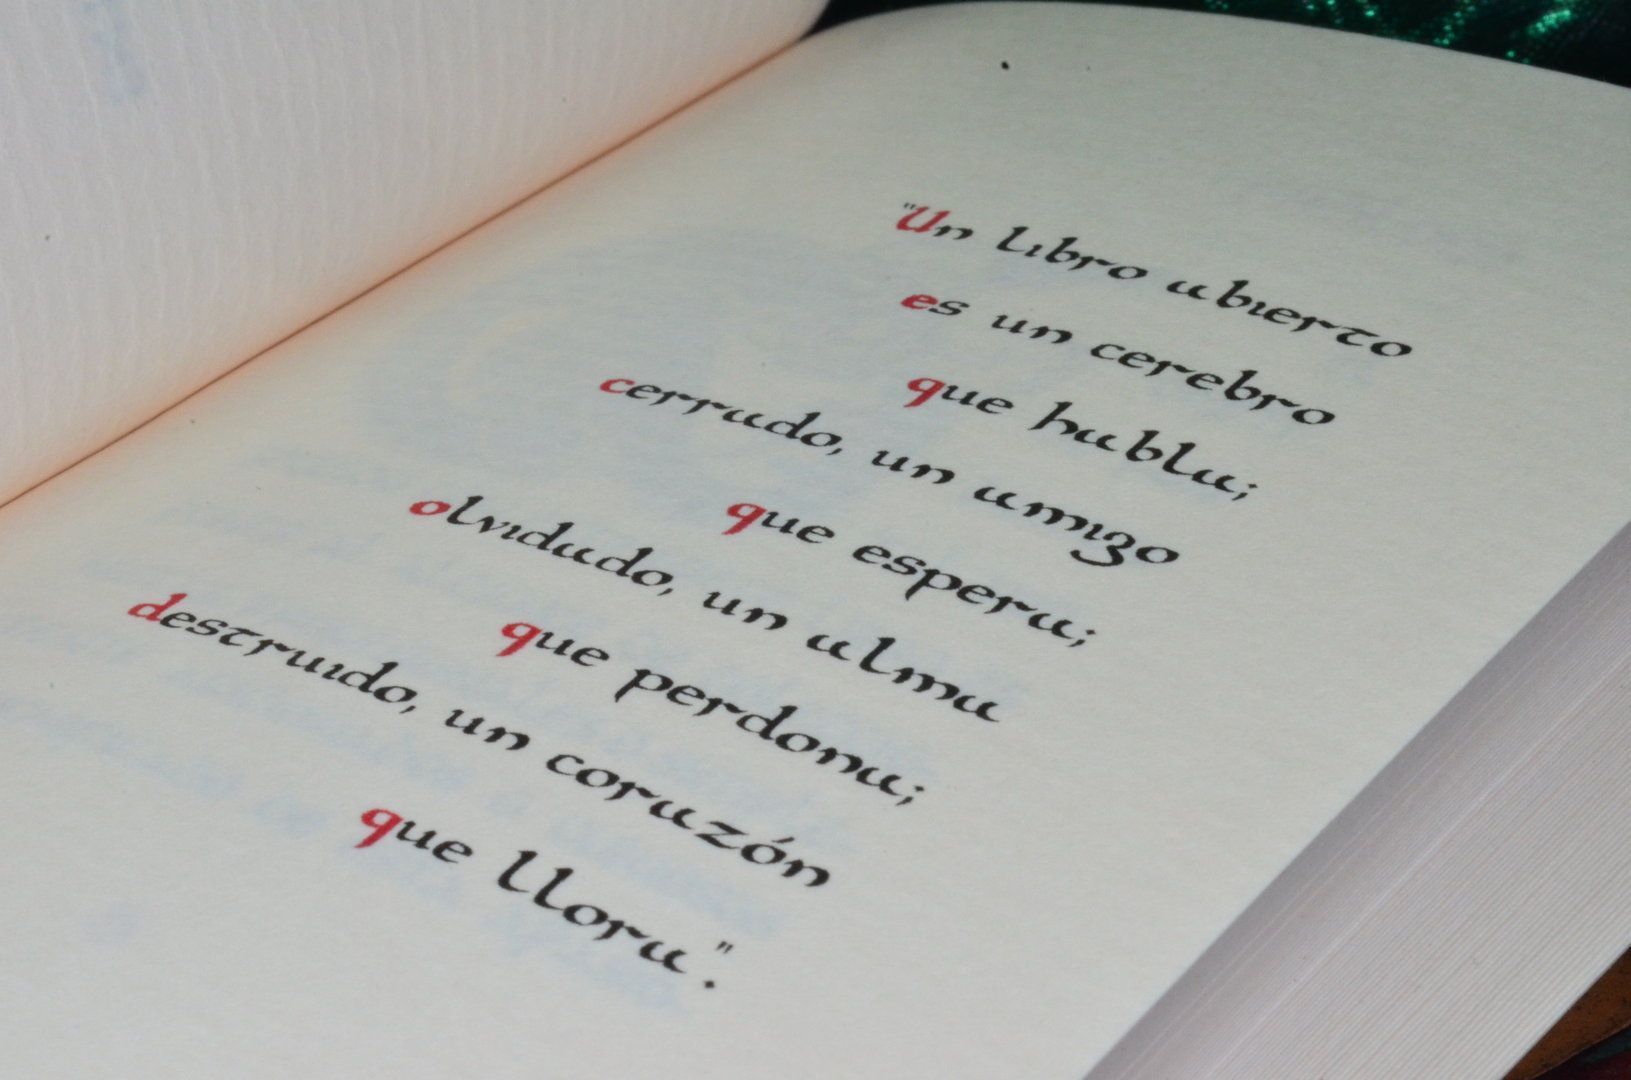 "Un libro abierto
es un cerebro
que habla;
cerrado, un amigo
que espera;
olvidado, un alma
que perdona;
destruido, un corazón
que llora".